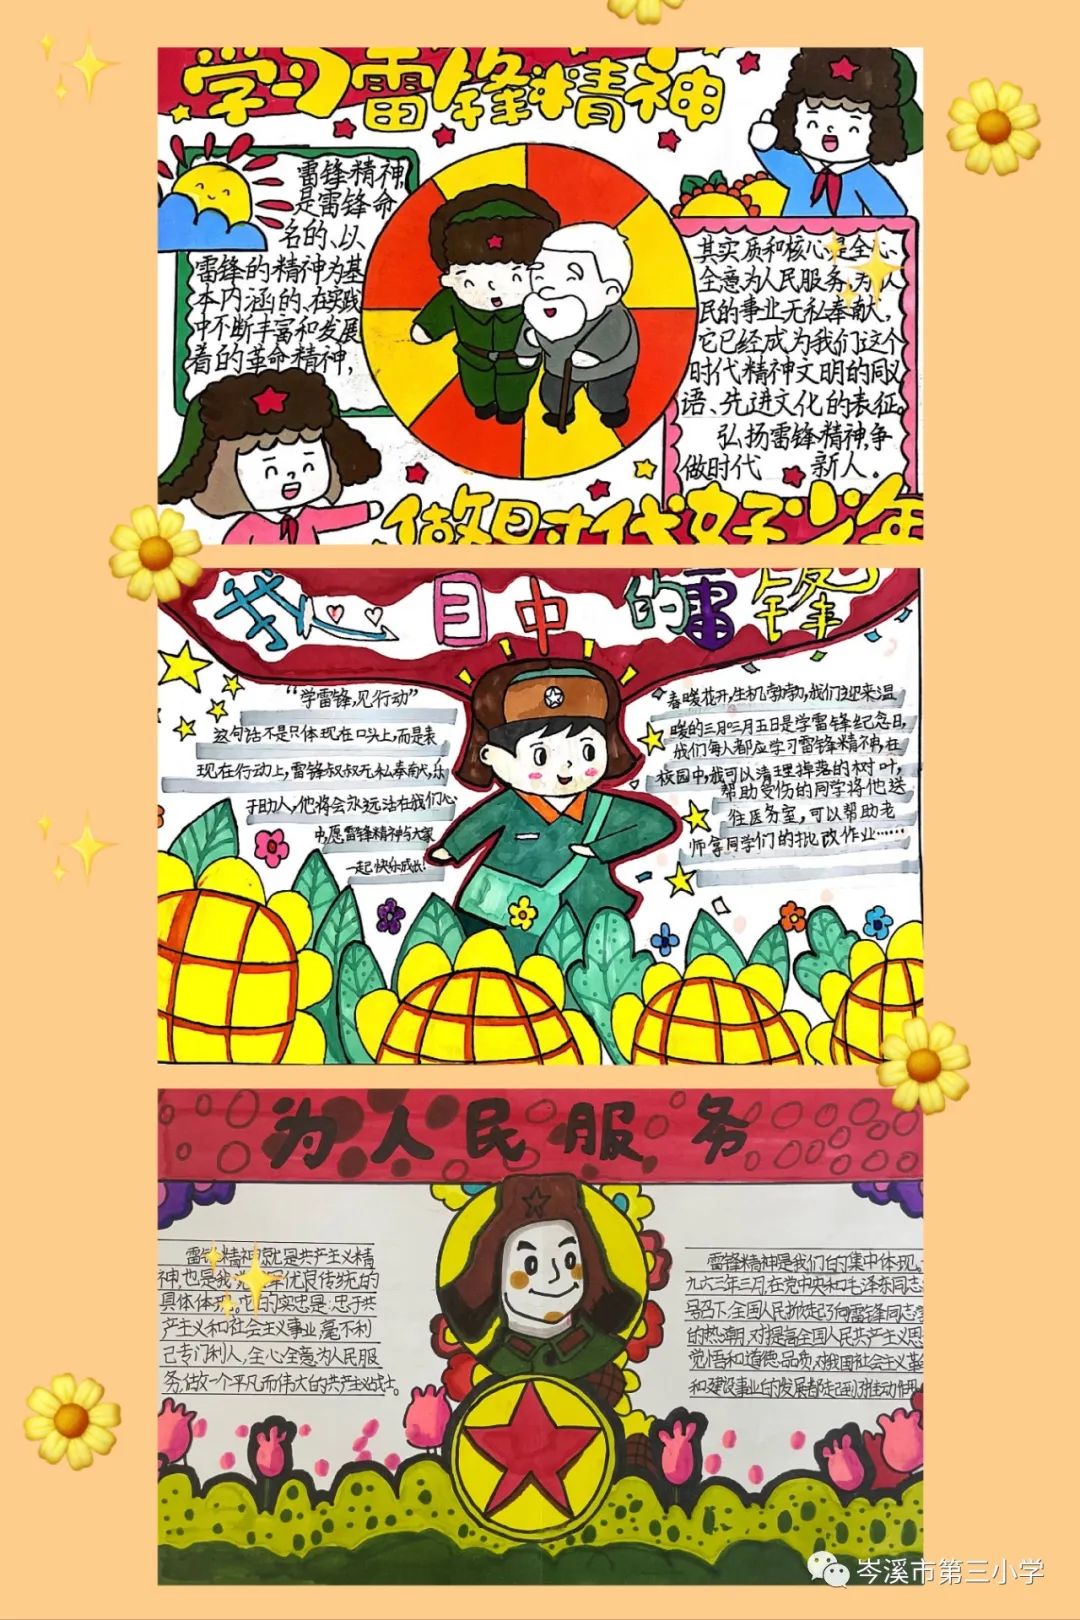 学习雷锋精神
雷锋精神,
是雷锋命
名的、以
雷锋的精神为基
本内涵的、在实践
中不断丰富和发展
着的革命精神,
其实质和核心是全心
全意为人民服务,为人
民的事业无私奉献,
它已经成为我们这个
时代精神文明的同义
语、先进文化的表征。
弘扬雷锋精神,争
做时代 新人。
做时代好少年
我心目中的雷锋
“学雷锋,见行动”
这句话不是只体现在口头上,而是表
现在行动上,雷锋叔叔无私奉献,乐
于助人,他将会永远活在我们心
中,愿雷锋精神与大家
一起快乐成长!
春暖花开,生机勃勃,我们迎来温
暖的三月,三月五日是学雷锋纪念日,
我们每人都应学习雷锋精神,在
校园中,我可以清理掉落的树叶,
帮助受伤的同学将他送
往医务室,可以帮助老
师拿同学们的批改作业……
为人民服务
雷锋精神就是共产主义精
神,也是我党我军优良传统的
具体体现。它的实忠是:忠于共
产主义和社会主义事业,毫不利
己专门利人,全心全意为人民服
务,做一个平凡而伟大的共产主义战士。
雷锋精神是我们的集中体现。
九六三年三月,在党中央和毛泽东同志
号召下,全国人民掀起了向雷锋同志学
的热潮,对提高全国人民共产主义思
觉悟和道德品质,对我国社会主义革
和建设事业的发展都起到推动作用
岑溪市第三小学